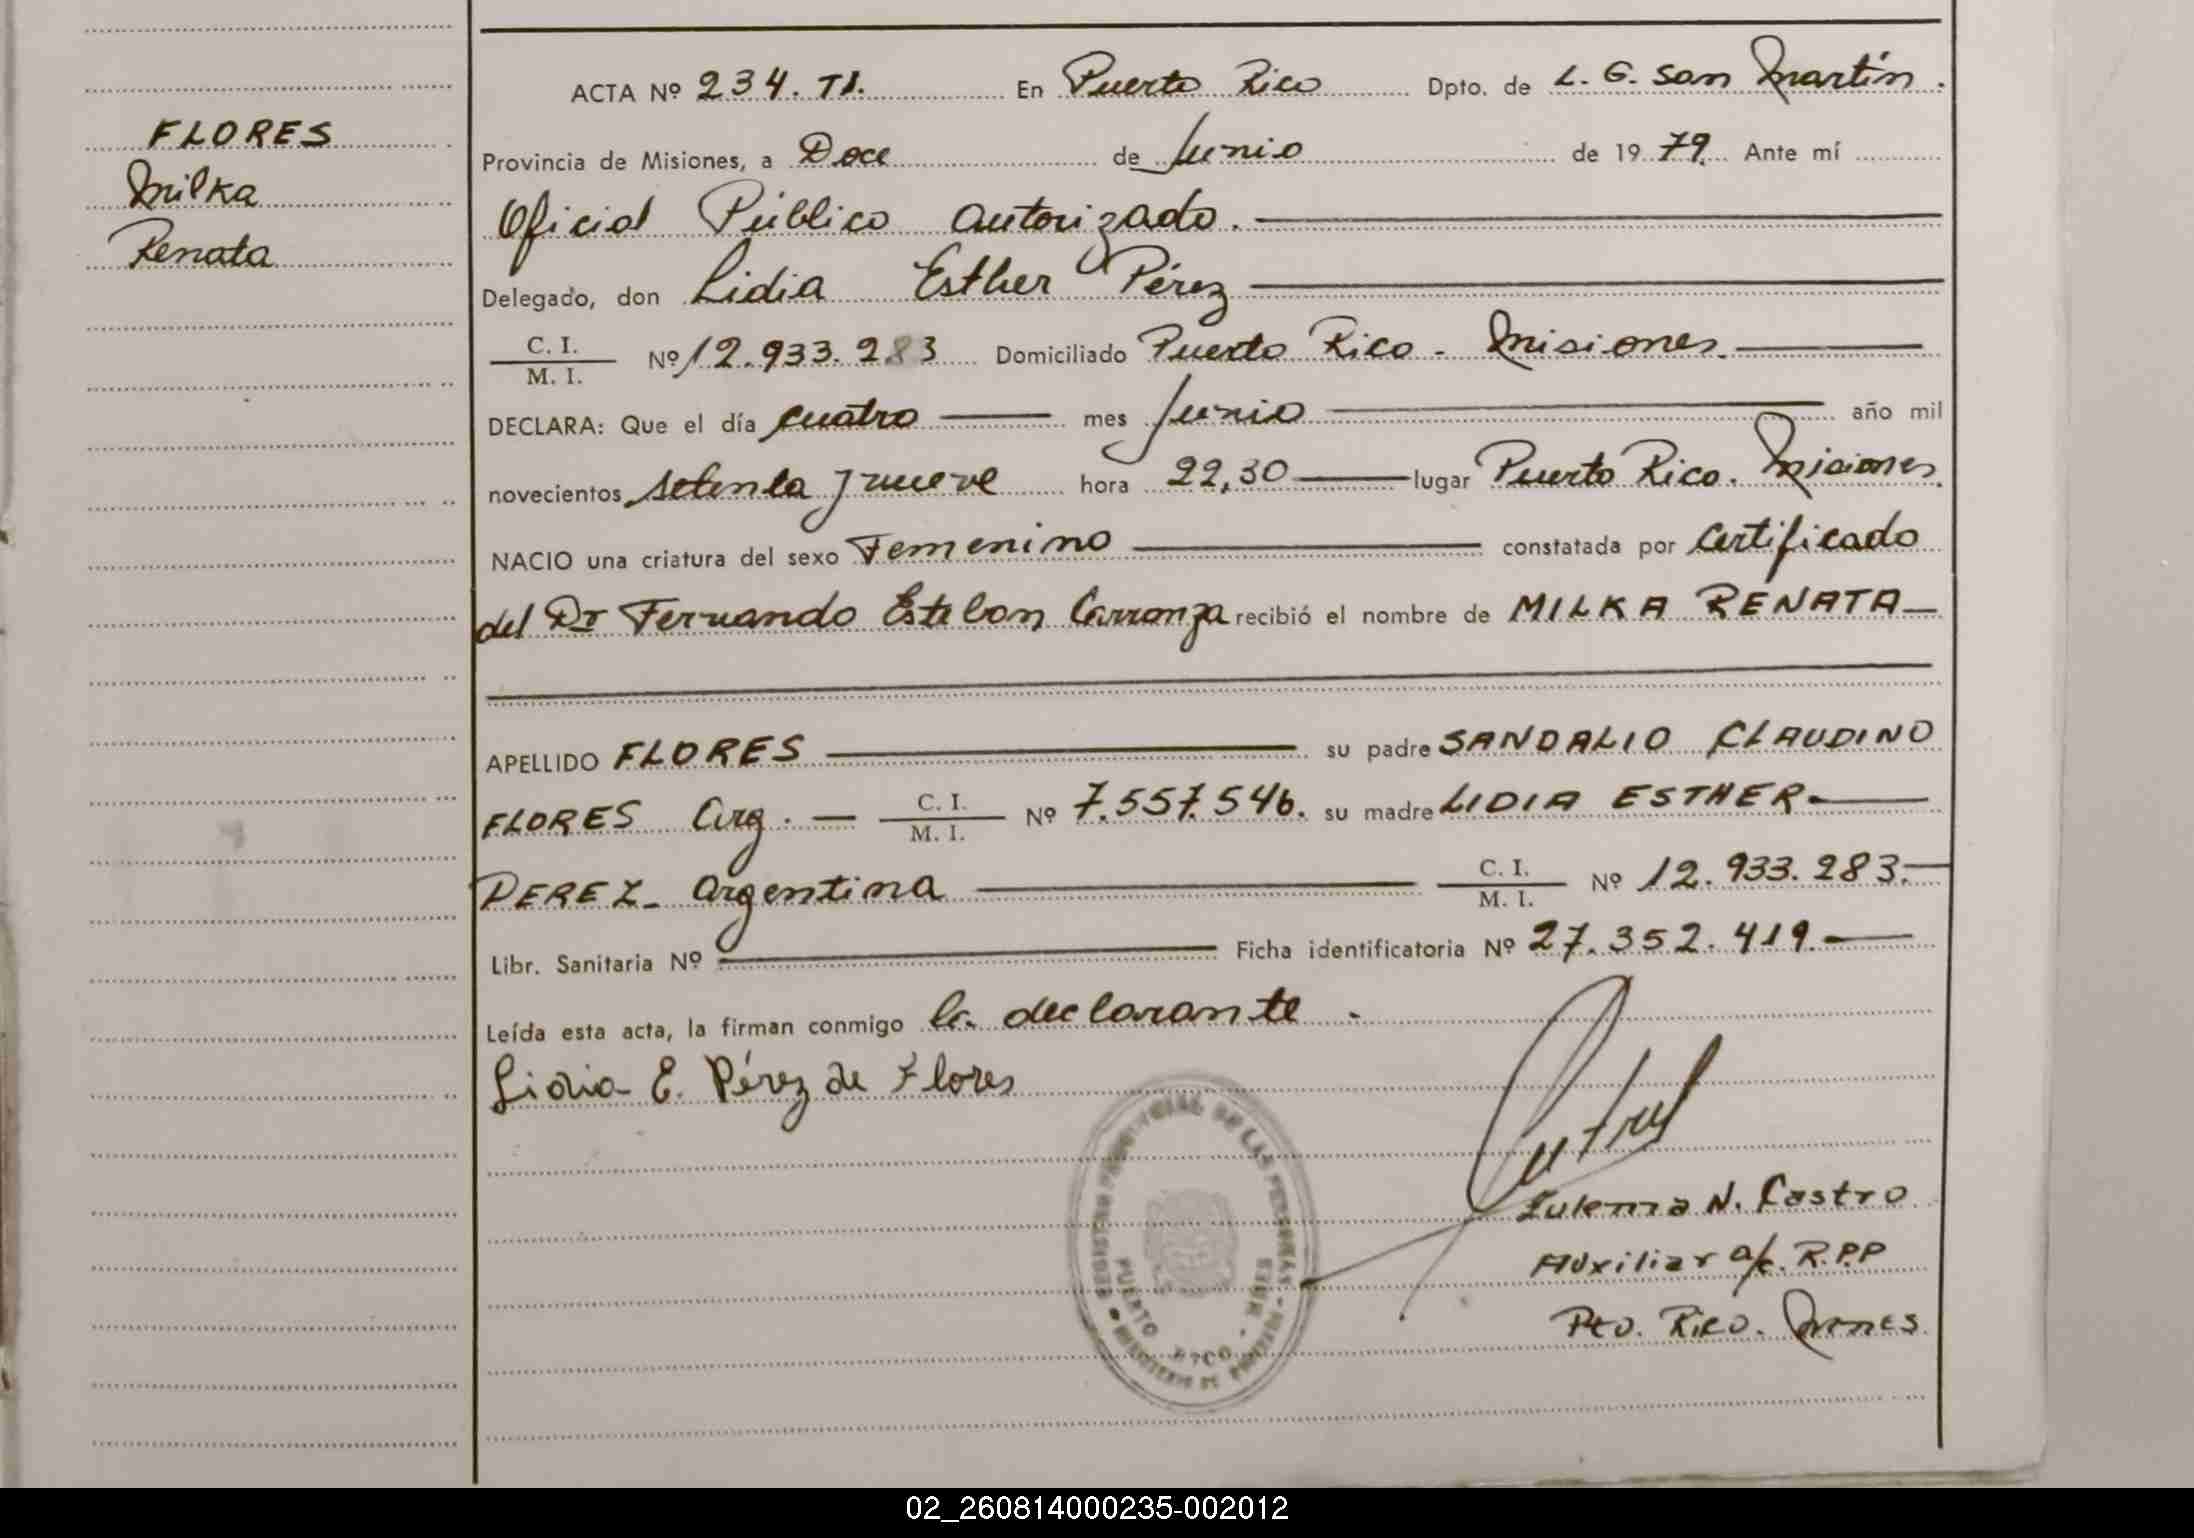 FLORES
Milka
Renata
ACTA Nº 234. TI. En Puerto Rico Dpto. de L. G. San Martín.
Provincia de Misiones, a Doce de Junio de 1979. Ante mí
Oficial Público autorizado.
Delegado, don Lidia Esther Pérez
C. I. / M. I. Nº 12.933.283 Domiciliado Puerto Rico - Misiones.
DECLARA: Que el día cuatro mes Junio año mil
novecientos setenta y nueve hora 22,30 lugar Puerto Rico. Misiones.
NACIO una criatura del sexo Femenino constatada por Certificado
del Dr Fernando Esteban Carranza recibió el nombre de MILKA RENATA
APELLIDO FLORES su padre SANDALIO CLAUDINO
FLORES Arg. - C. I. / M. I. Nº 7.557.546. su madre LIDIA ESTHER
PEREZ - Argentina C. I. / M. I. Nº 12.933.283.
Libr. Sanitaria Nº Ficha identificatoria Nº 27.352.419.
Leída esta acta, la firman conmigo la declarante.
Lidia E. Pérez de Flores
REGISTRO PROVINCIAL DE LAS PERSONAS
PUERTO RICO - MNES
Zulema N. Castro
Auxiliar a/c. R.P.P
Pto. Rico. Mnes
02_260814000235-002012